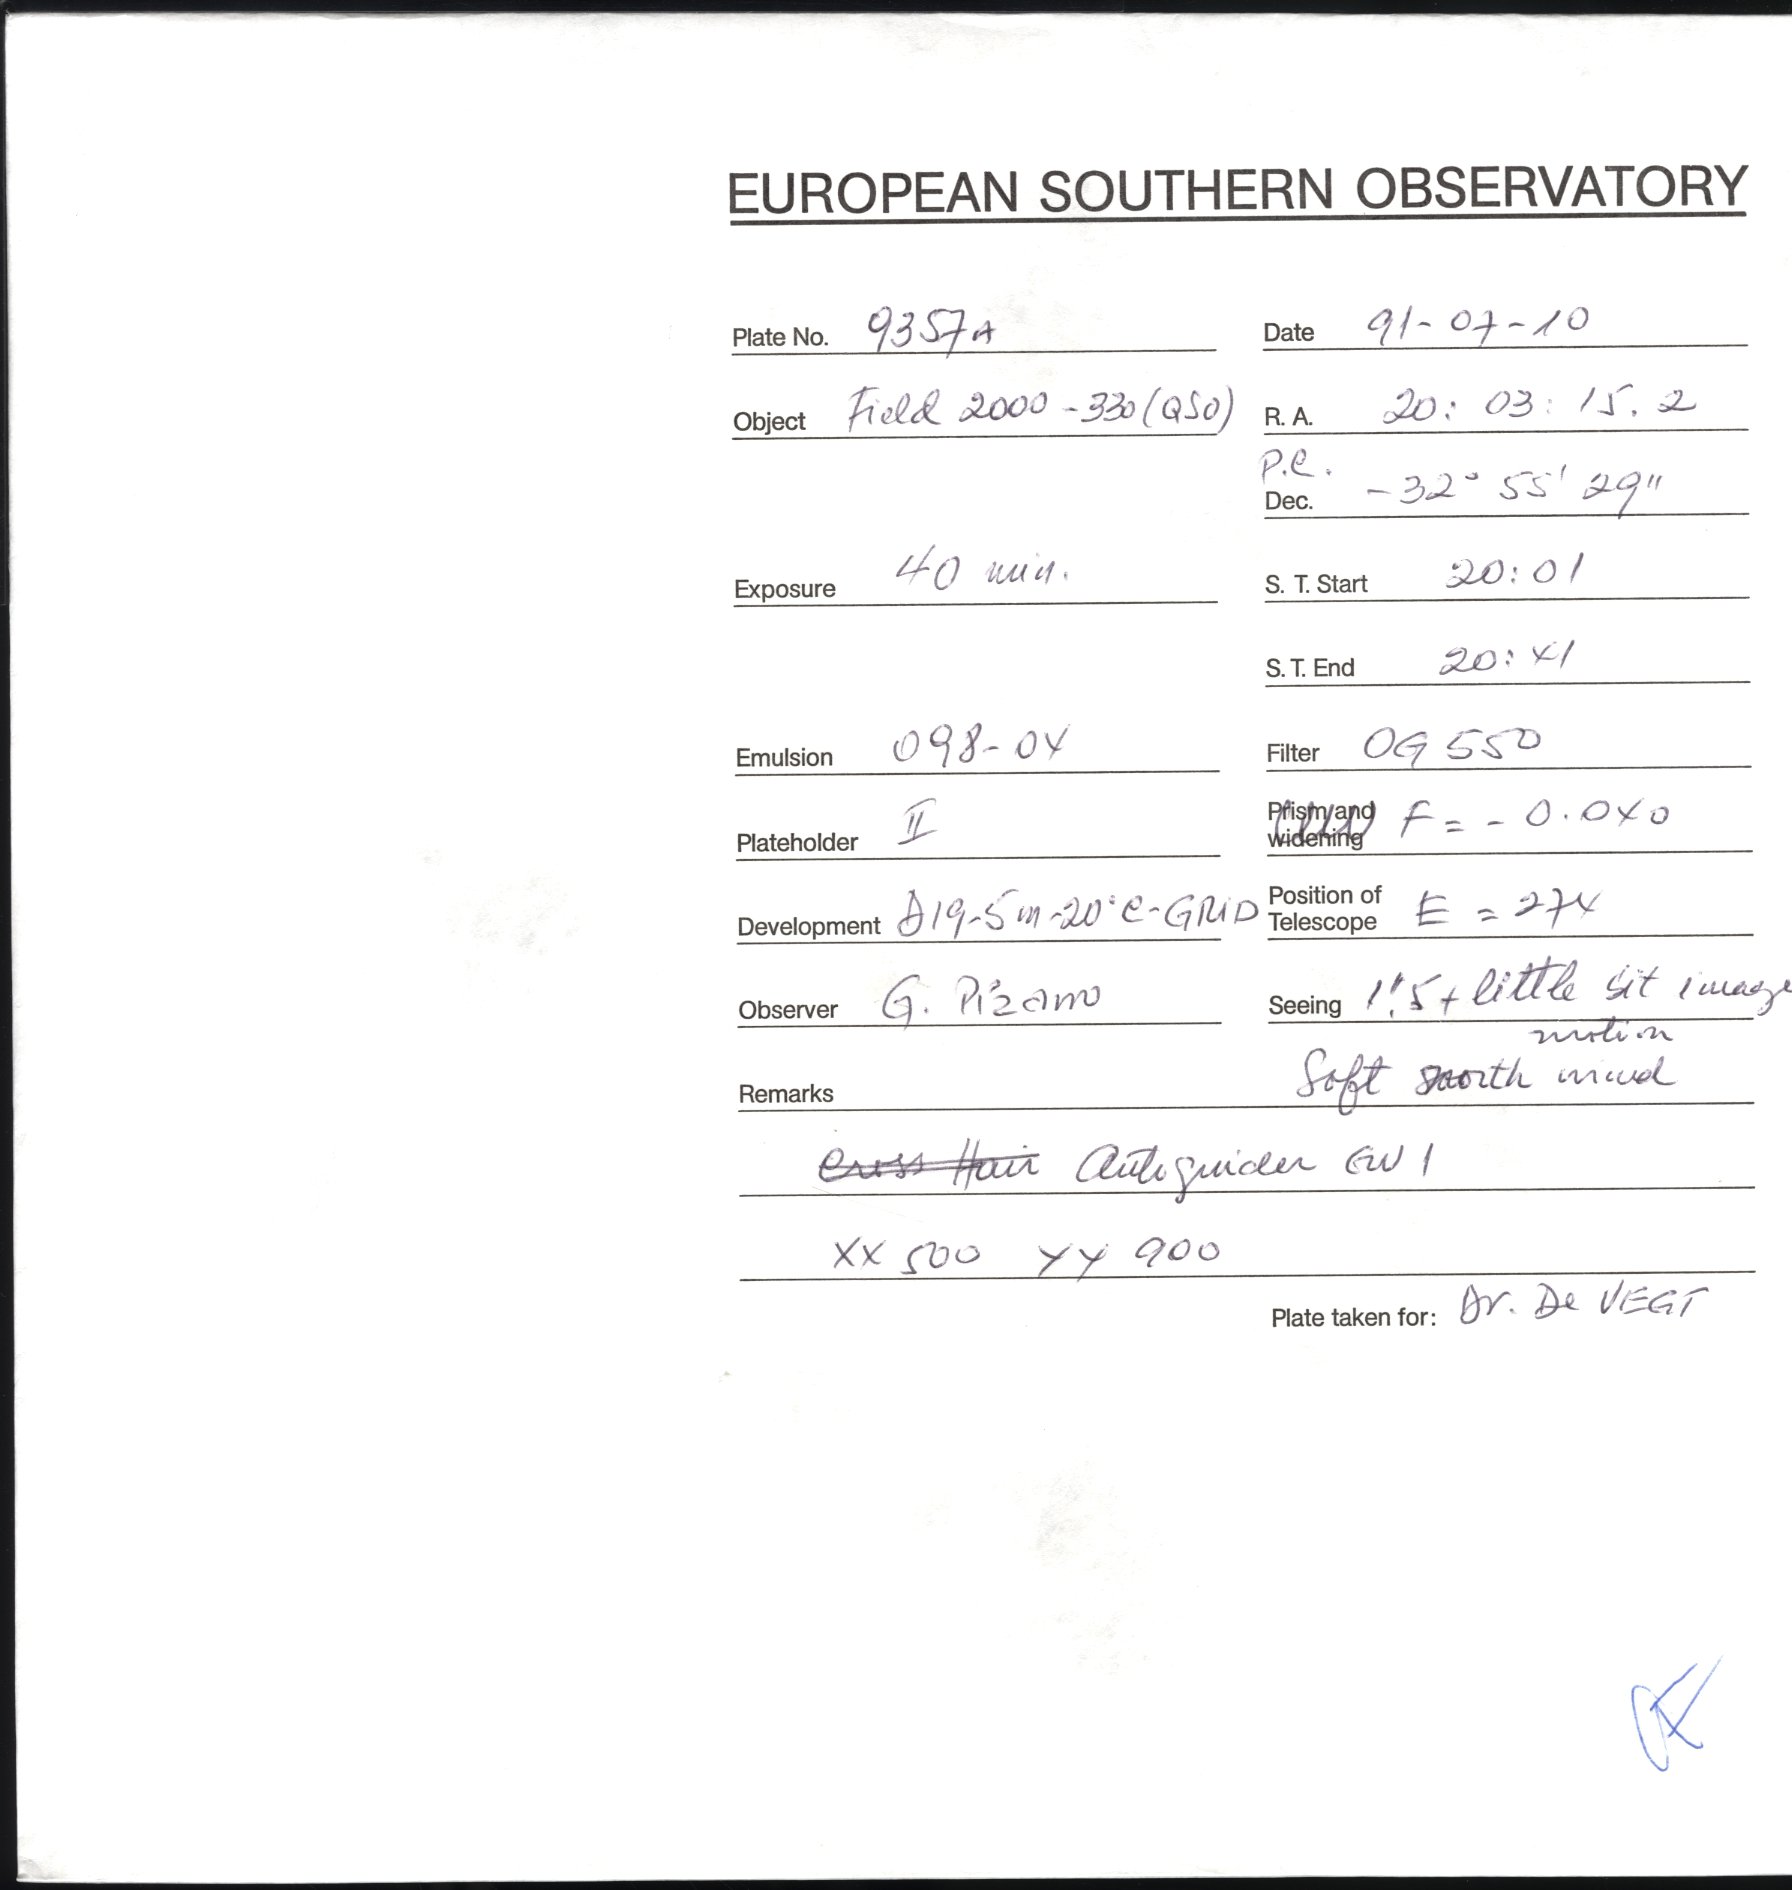 EUROPEAN SOUTHERN OBSERVATORY
Plate No. 9357A Date 91-07-10
Object Field 2000 -330 (QSO) R. A. 20: 03: 15. 2
P.C.
Dec. -32° 55' 29"
Exposure 40 min. S. T. Start 20:01
S. T. End 20:41
Emulsion 098-04 Filter OG 550
Plateholder II Prism and widening F = - 0.040
Development D19-5m-20°C-GRID Position of Telescope E = 274
Observer G. Pizarro Seeing 1".5 + little bit image
motion
Remarks Soft north wind
Cross Hair Autoguider GW 1
XX 500 YY 900
Plate taken for: Dr. De VEGT